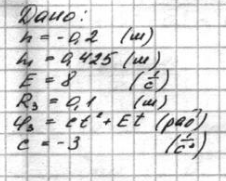 Дано:
h = -0,2 (м)
h₁ = 0,425 (м)
E = 8 (1/c)
R₃ = 0,1 (м)
φ₃ = ct² + Et (рад)
c = -3 (1/c²)